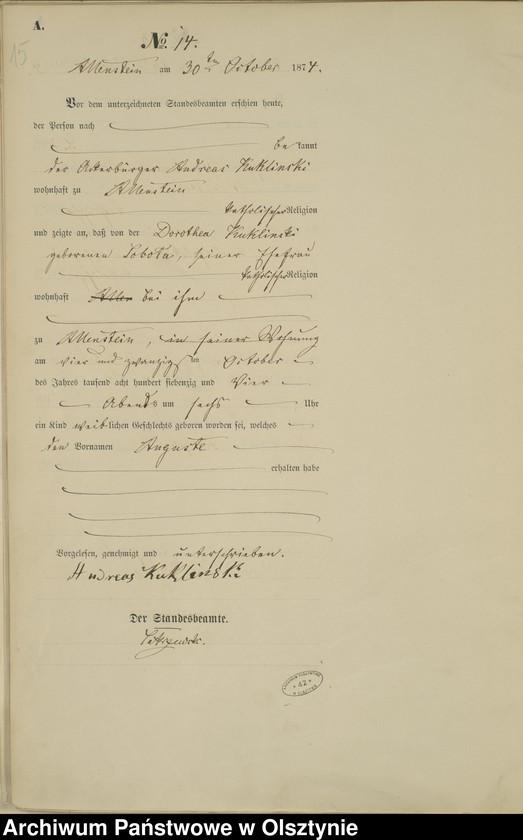 A.
15
No. 14.
Allenstein am 30ten October 1874.
Vor dem unterzeichneten Standesbeamten erschien heute,
der Person nach
bekannt
der Ackerbürger Andreas Kuklinski
wohnhaft zu Allenstein
katholischer Religion
und zeigte an, daß von der Dorothea Kuklinski
geborenen Sobotta, seiner Ehefrau
katholischer Religion
wohnhaft bei ihm
zu Allenstein, in seiner Wohnung
am vier und zwanzigsten October
des Jahres tausend acht hundert siebenzig und vier
Abends um sechs Uhr
ein Kind weiblichen Geschlechts geboren worden sei, welches
den Vornamen Auguste
erhalten habe
Vorgelesen, genehmigt und unterschrieben.
Andreas Kuklinski
Der Standesbeamte.
42
Archiwum Państwowe w Olsztynie